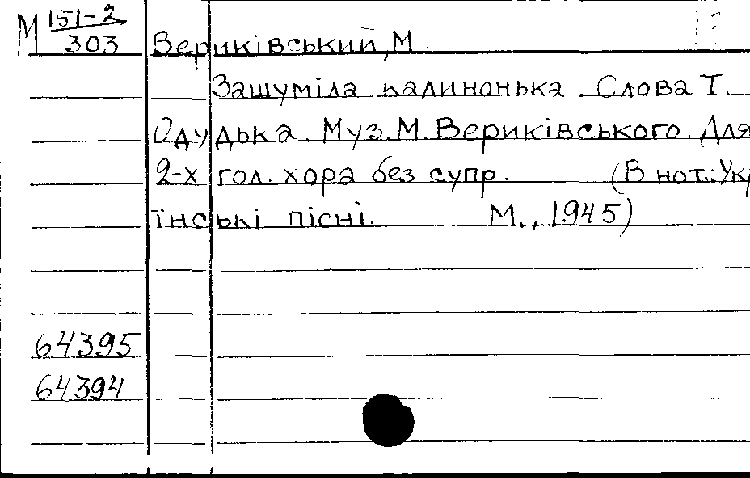 М 151-2
303
Вериківський, М
Зашуміла калинонька. Слова Т.
Одудька. Муз. М. Вериківського. Для
2-х гол. хора без супр. (В нот.: Укр
їнські пісні. М., 1945)
64395
64394